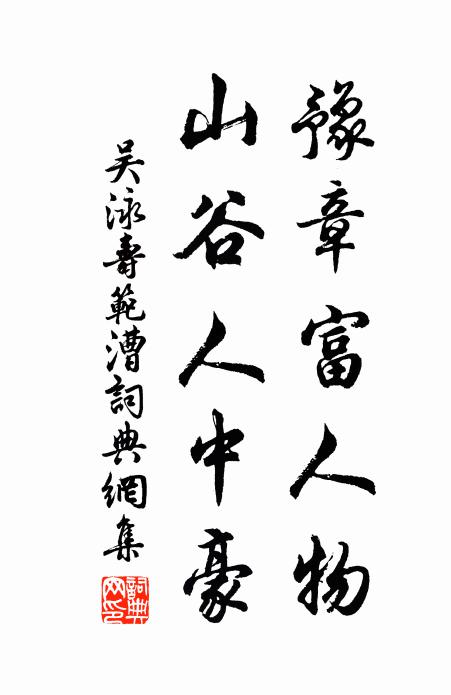 豫章富人物
山谷人中豪
吴泳壽範漕詞典網集
詞典網印